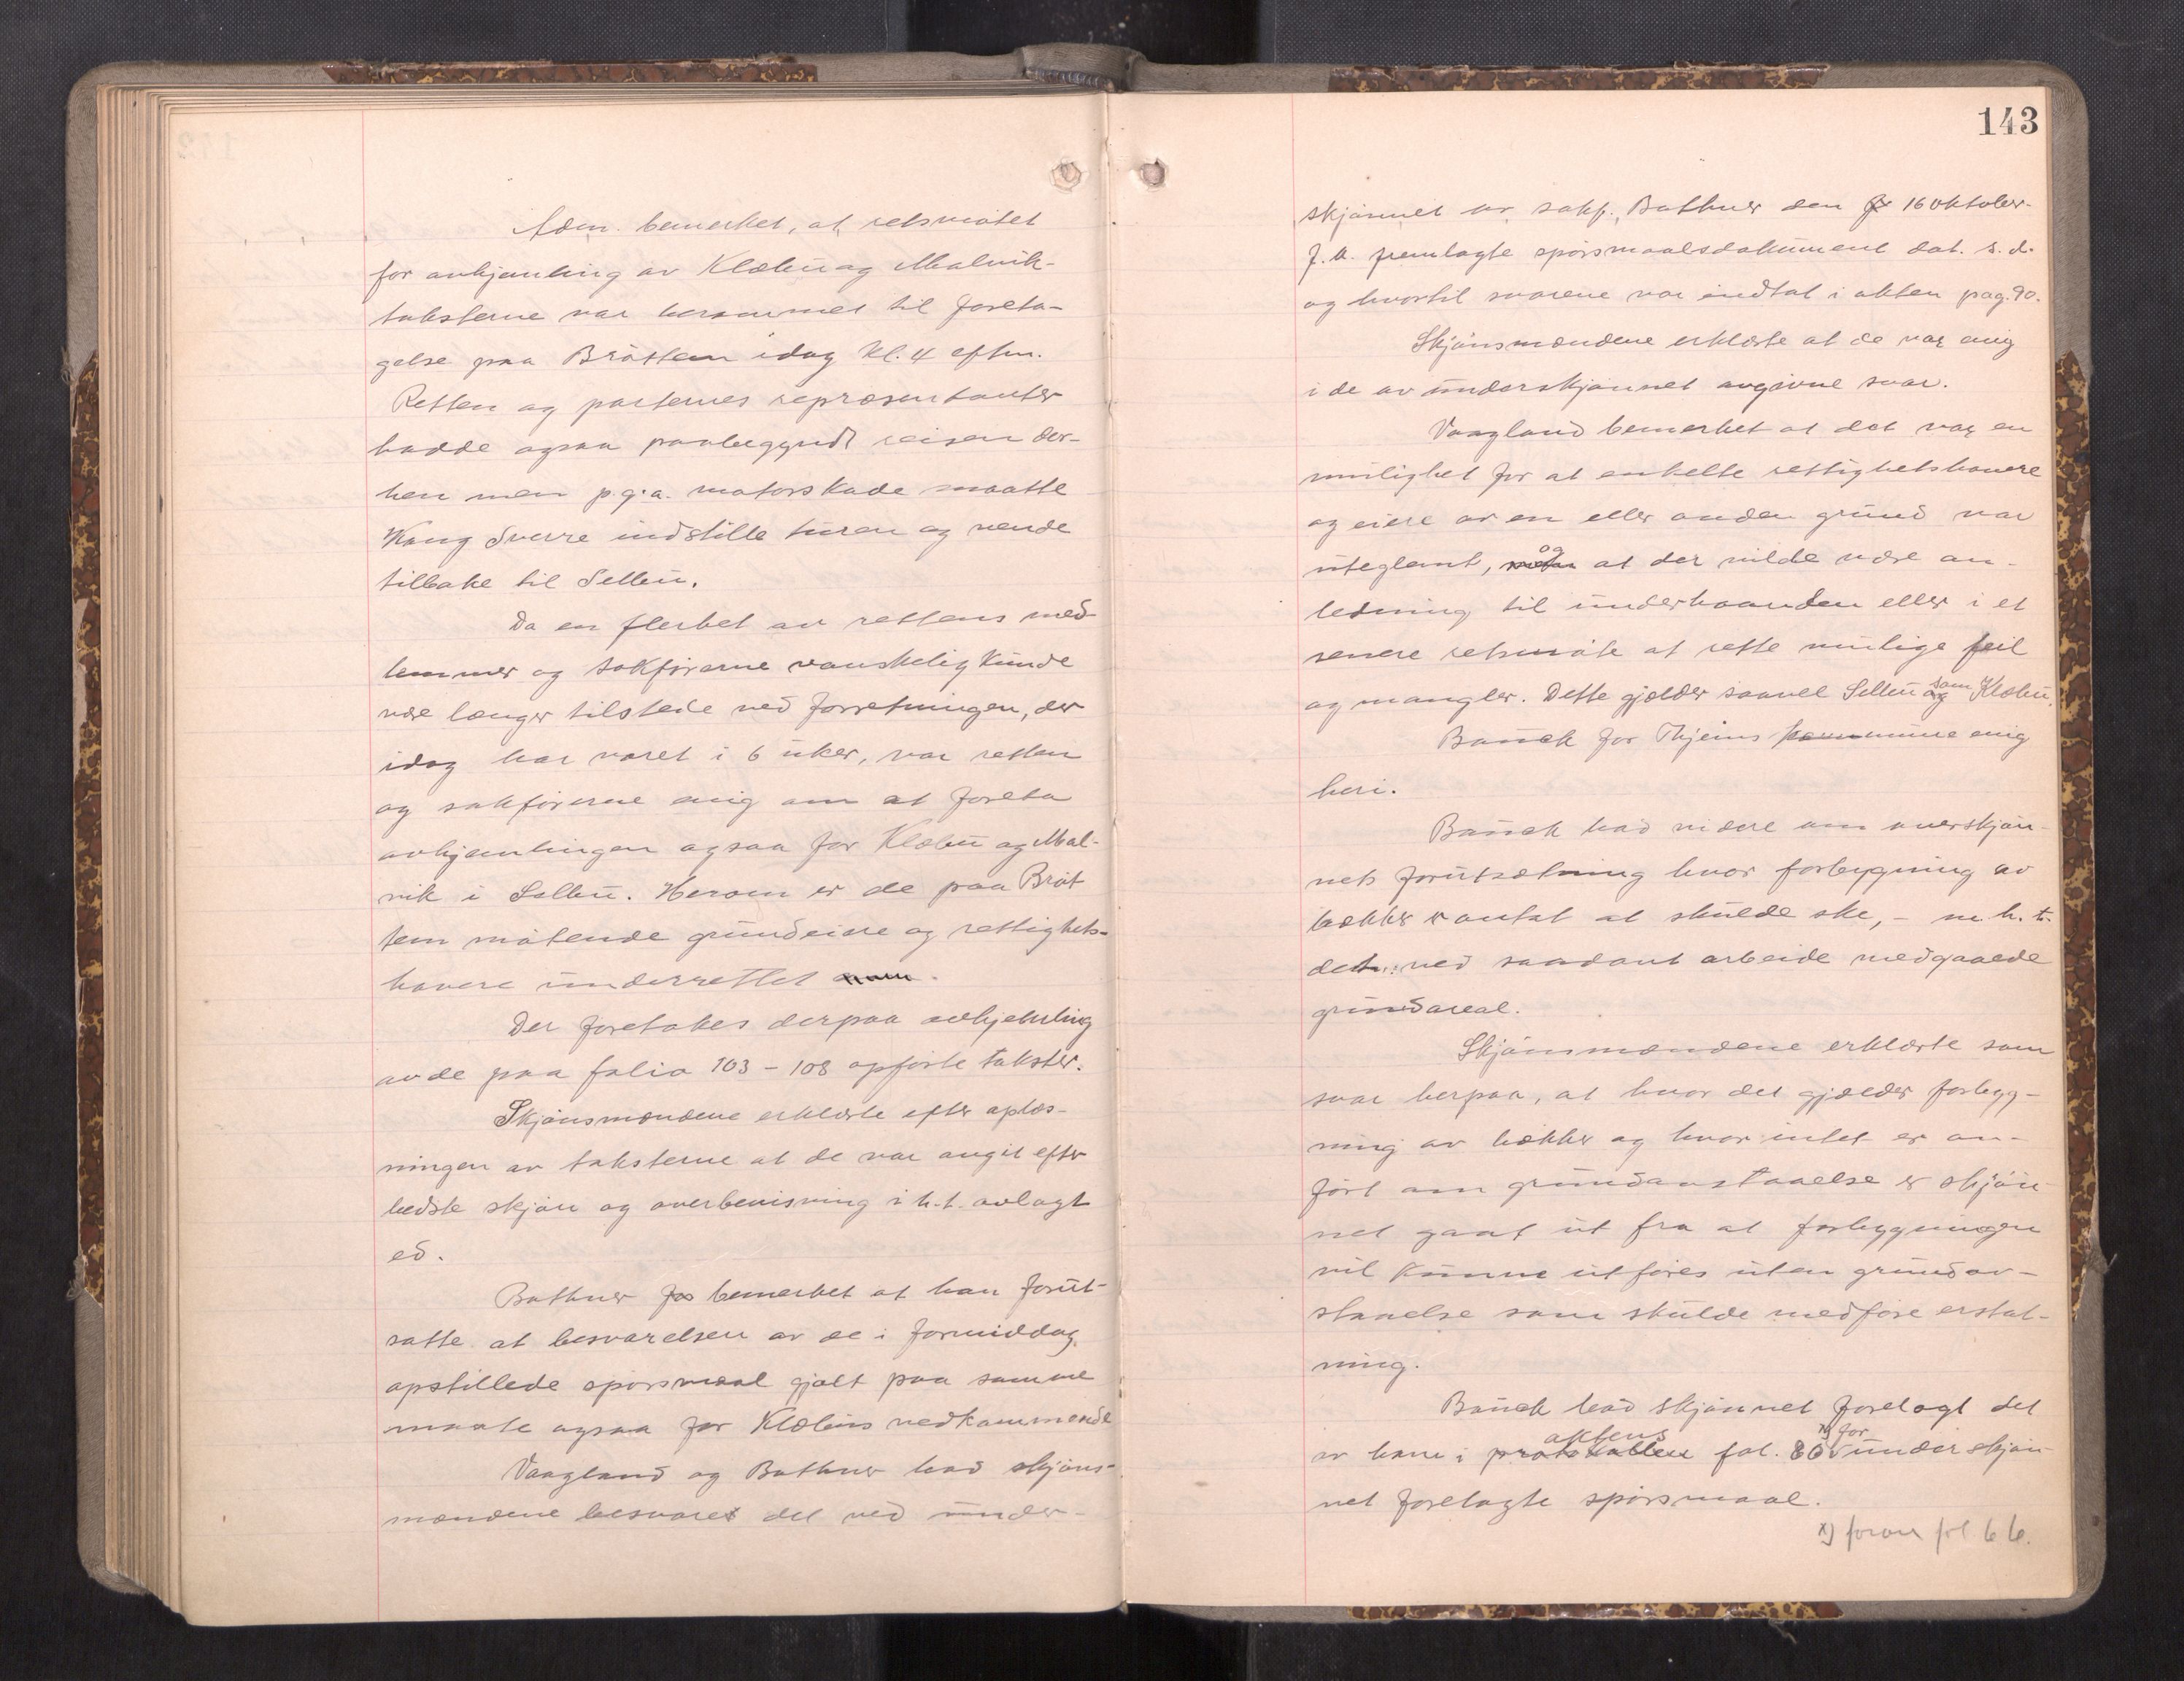 Adm. bemerket, at retsmötet
for avhjemling av Klæbu og Malvik-
taksterne var berammet til foreta-
gelse paa Bröttem idag kl. 4 eftm.
Retten og parternes repræsentanter
hadde ogsaa paabegyndt reisen der-
hen men p.g.a. motorskade maatte
Kong Sverre indstille turen og vende
tilbake til Selbu.
Da en flerhet av rettens med
lemmer og sakförerne vanskelig kunde
være længer tilstede ved forretningen, der
idag har varet i 6 uker, var retten
og sakförerne enig om at foreta
avhjemlingen ogsaa for Klæbu og Mal-
vik i Selbu. Herom er de paa Bröt
tem mötende grundeiere og rettighets-
havere underrettet
Der foretokes derpaa avhjemling
av de paa folio 103 - 108 opförte takster.
Skjönsmændene erklærte efter oplæs-
ningen av taksterne at de var avgit efter
bedste skjön og overbevisning i h.t. avlagt
ed.
Bathner for bemerket at han forut-
satte at besvarelsen av de i formiddag
opstillede spörsmaal gjalt paa samme
maate ogsaa for Klæbus vedkommende
Vaagland og Bathner bad skjöns-
mændene besvaret det ved under-
143
skjönnet av sakf. Bathner den 16 oktober
f.a. fremlagte spörsmaalsdokument dat. s.d.
og hvortil svarene var indtat i akten pag. 90.
Skjönsmændene erklærte at de var enig
i de av underskjönnet avgivne svar.
Vaagland bemerket at det var en
mulighet for at enkelte rettighetshavere
og eiere av en eller anden grund var
uteglemt, og at der vilde være an-
ledning til underhaanden eller i et
senere retsmöte at rette mulige feil
og mangler. Dette gjælder saavel Selbu som Klæbu.
Bauck for Thjems kommune enig
heri.
Bauck bad videre om overskjön-
nets forutsætning hvor forbygning av
bækker er antat at skulde ske, - m.h.t.
det ved saadant arbeide medgaaede
grundareal.
Skjönsmændene erklærte som
svar herpaa, at hvor det gjælder forbyg-
ning av bækker og hvor intet er an-
fört om grundavstaaelse er skjön-
net gaat ut fra at forbygningen
vil kunne utföres uten grundav-
staaelse som skulde medföre erstat-
ning.
Bauck bad skjönnet forelagt det
av ham i aktens fol. 80 x) for underskjön-
net forelagte spörsmaal.
x) foran fol 66.